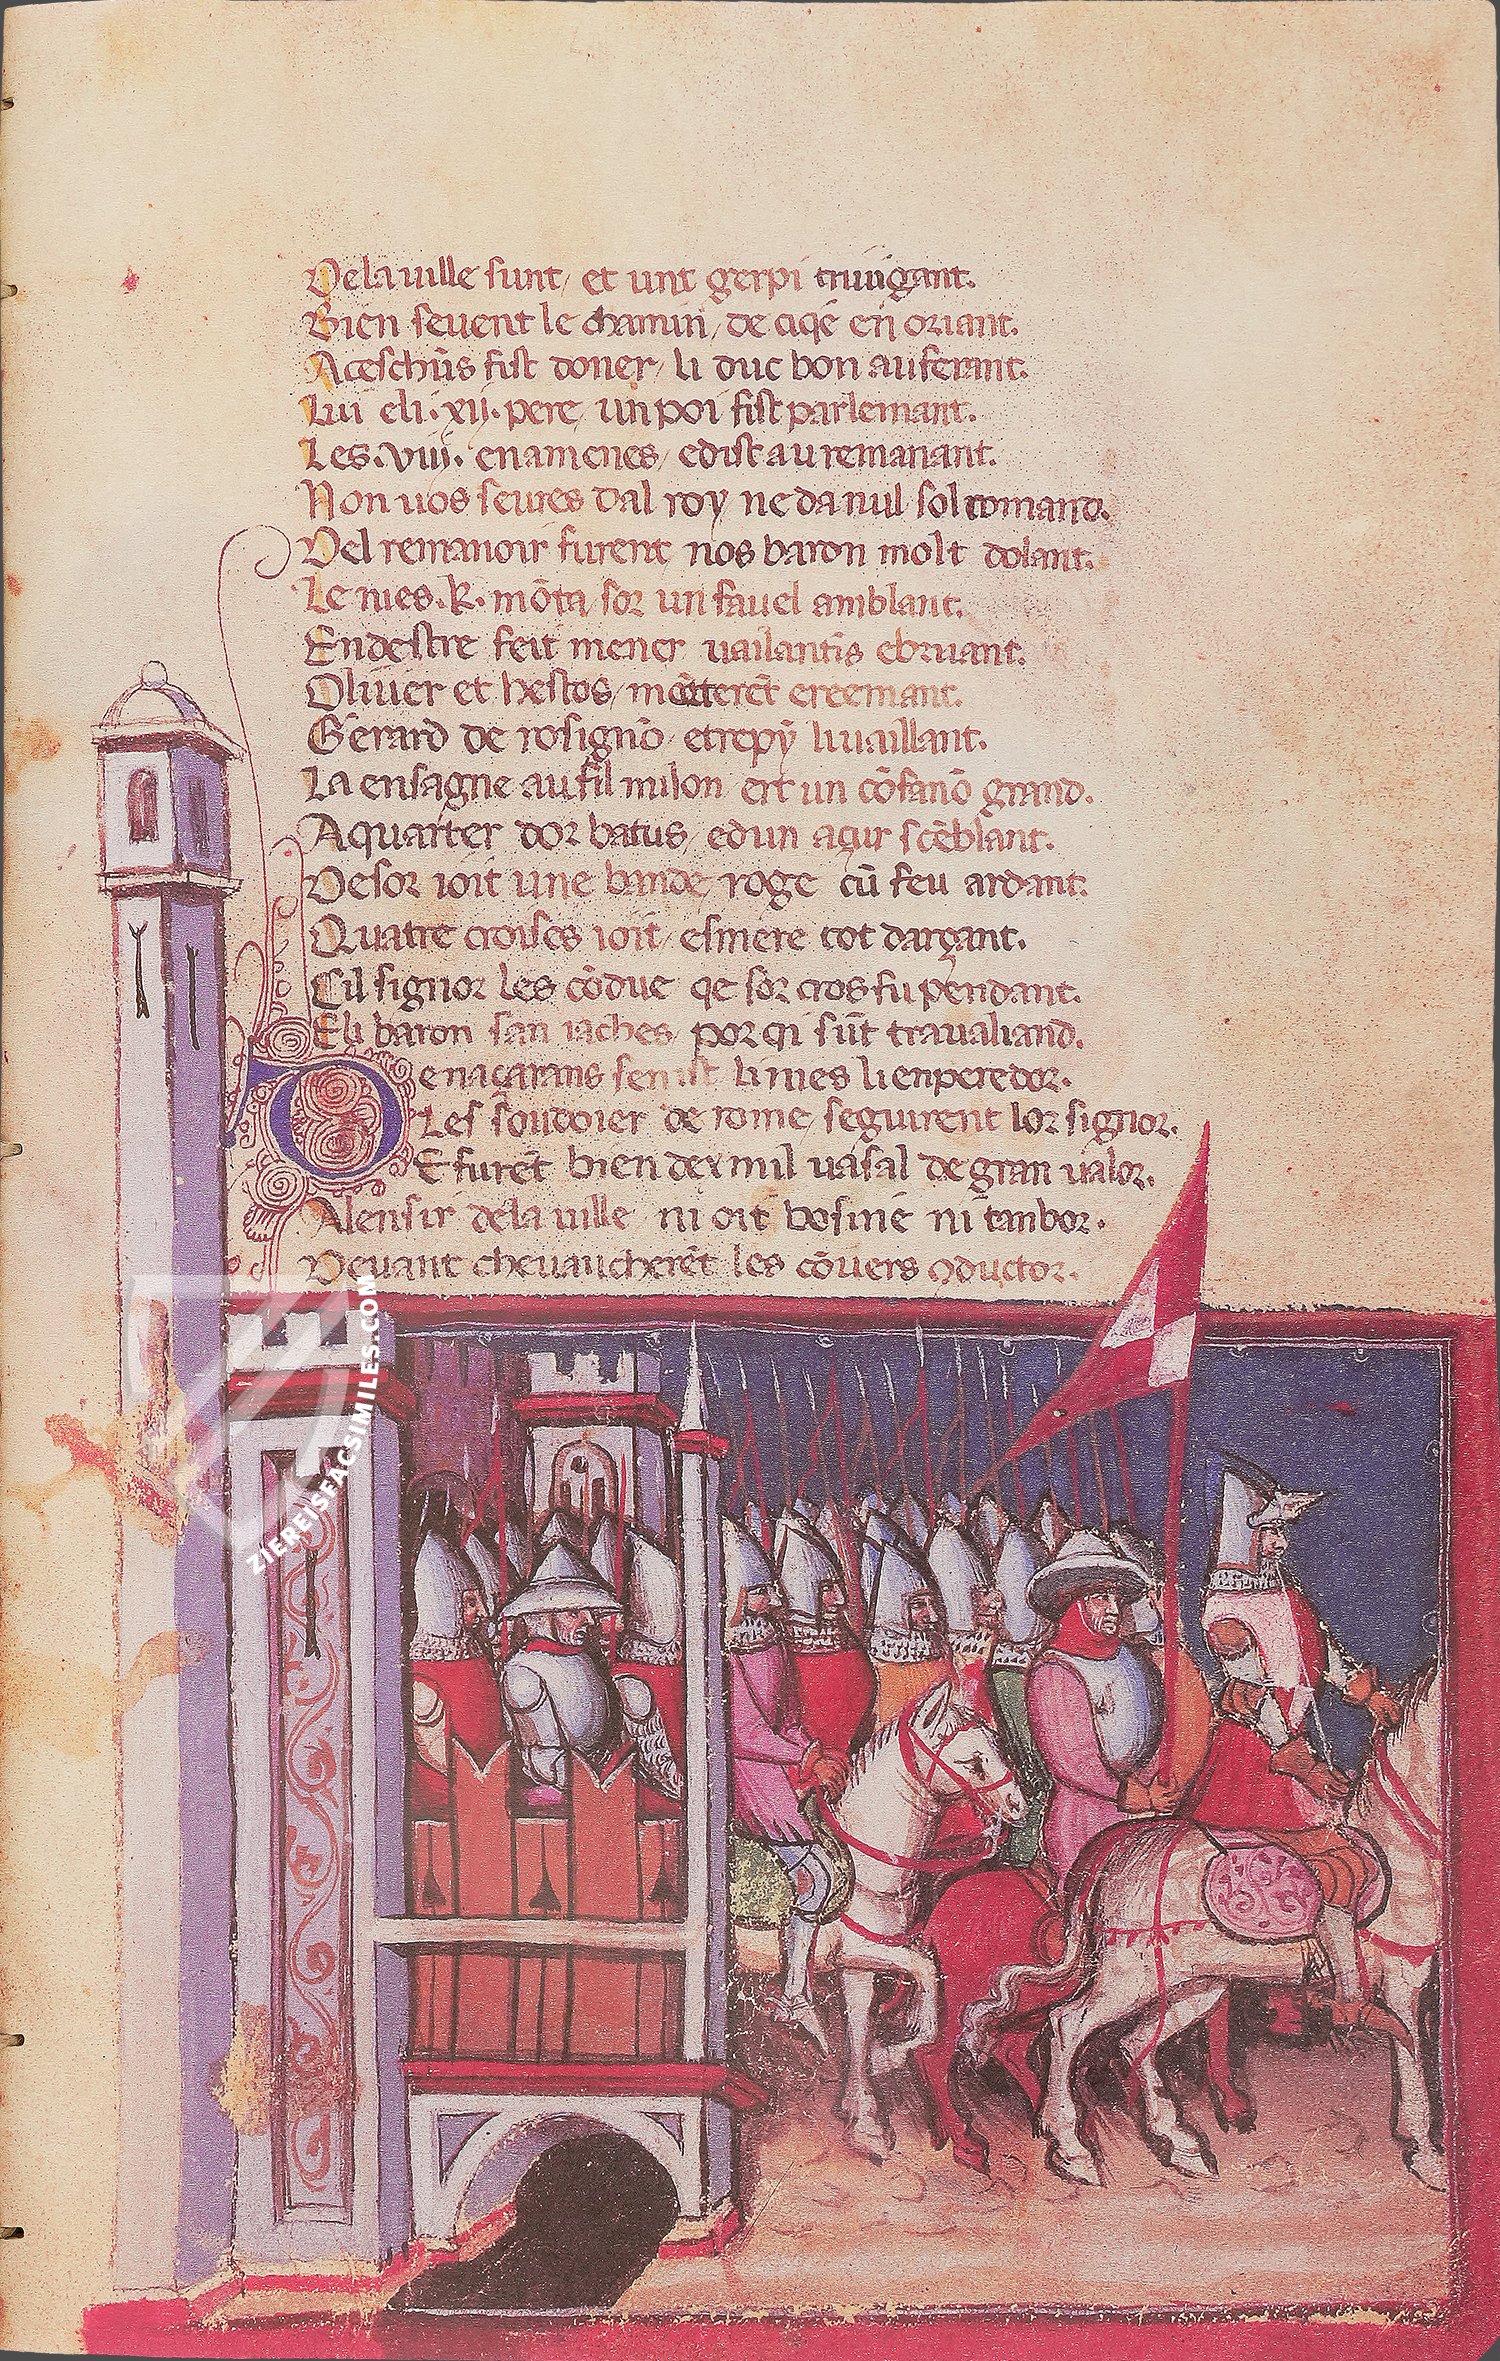 De la uille sunt / et unt gerpi truuigant.
Bien seuent le chamin / de aqe en oriant.
Aceschūs fist doner / li duc bon auferant.
Lui e li .xij. pere / un poi fist parlemant.
Les .viij. en amenes / e dist au remanant.
Non uos seures dal roy ne da nul sol comand.
Del remanoir furent nos baron molt dolant.
Le nies .K. mōta / sor un fauel amblant.
En destre feit mener uailantis e bruant.
Oliuer et hestos / mōterēt ereemant.
Gerard de rosignō / et repȳ li uaillant.
La ensagne au fil milon ert un cōfanō grand.
A quarter dor batus / e dun açur scēblant.
Desor ioit une bande / roge cū feu ardant.
Quatre croises ioit / esmere tot dargant.
Cil signor les cōdue qe sor cros fu pendant.
E li baron san iaches / por qi sūt traualiand.
De naçarans sen ist li nies li enperedor.
Les soudoier de rome / seguirent lor signor.
E furēt bien dex mil uasal de gran ualor.
Al ensir de la uille ni oit bosine ni tanbor.
Deuant cheuaucherēt les cōuers ꝯductor.
ZIEREISFACSIMILES.COM